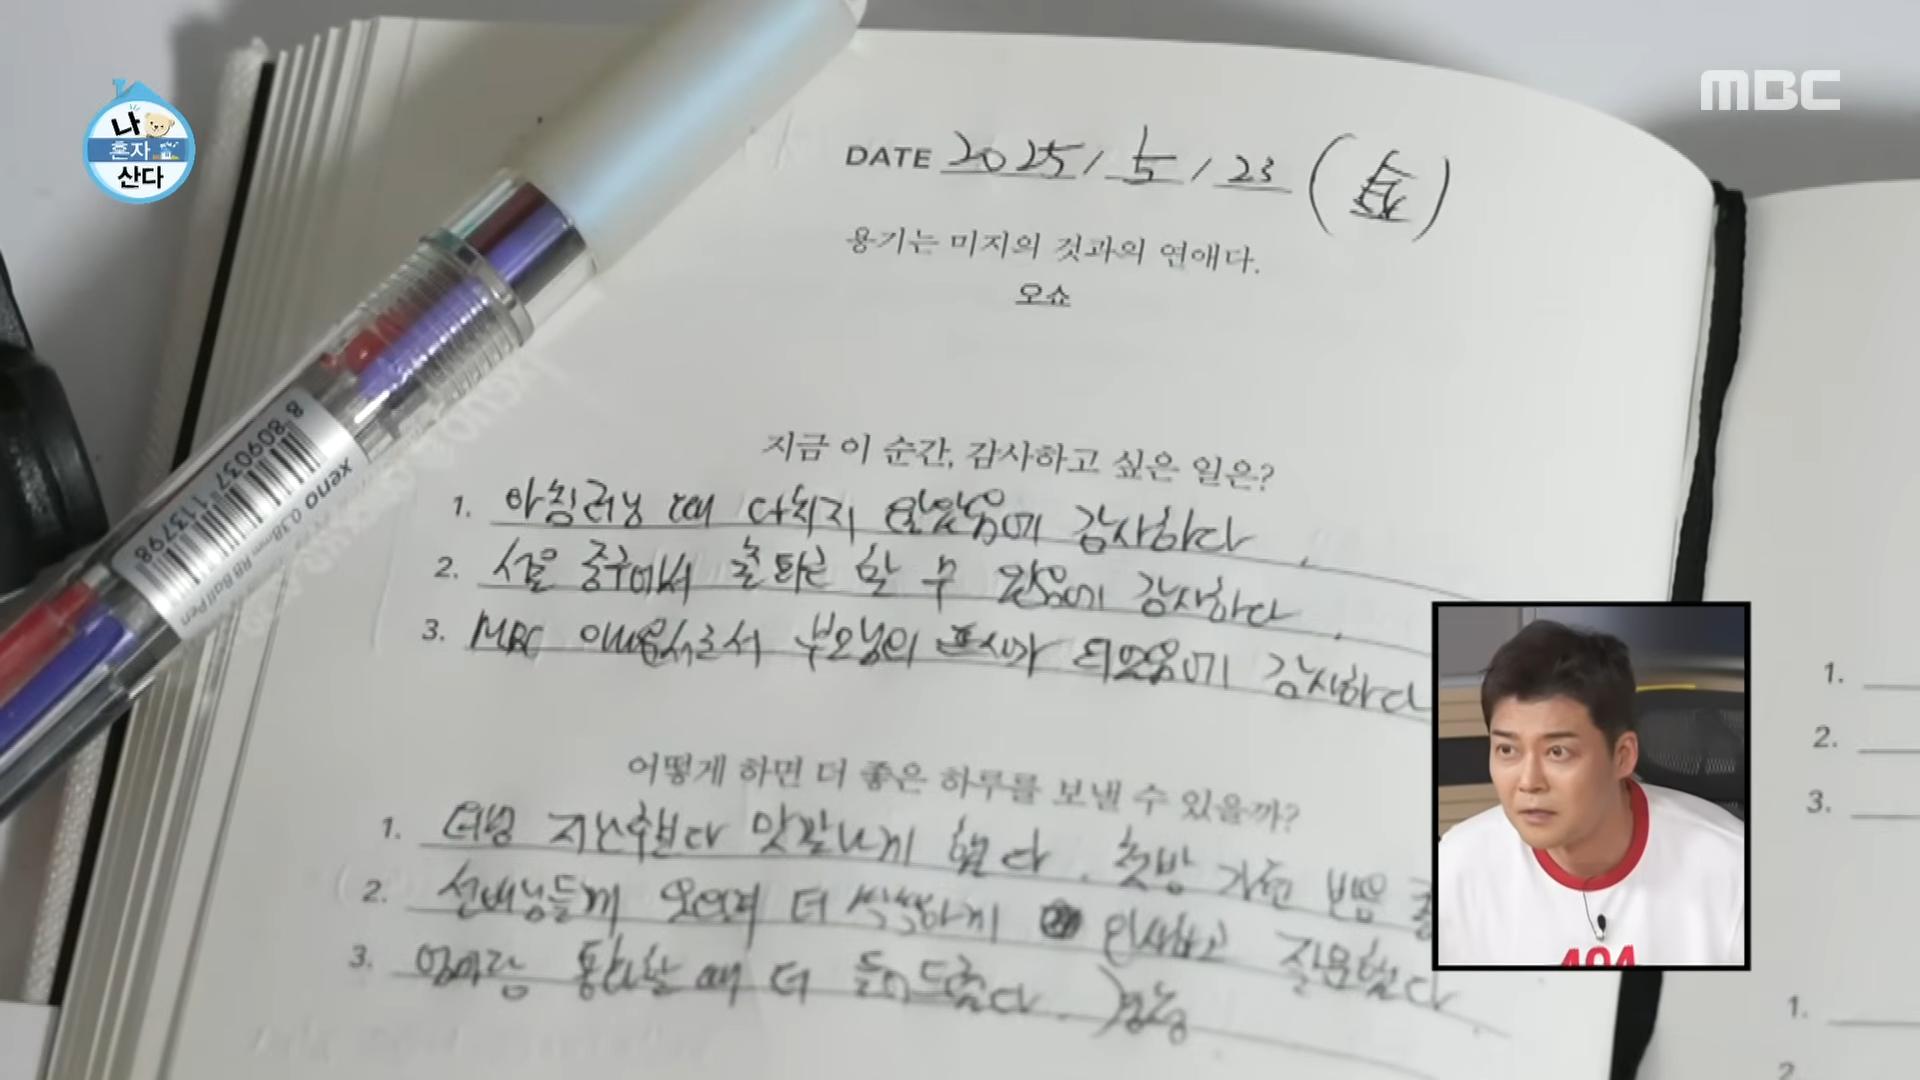 나
혼자
산다
MBC
DATE 2025 / 5 / 23 (金)
용기는 미지의 것과의 연애다.
오쇼
지금 이 순간, 감사하고 싶은 일은?
1. 아침러닝 때 다치지 않았음에 감사하다.
2. 서울 중구에서 출퇴근 할 수 있음에 감사하다.
3. MBC 아나운서로서 부모님의 되었음에 감사하다
어떻게 하면 더 좋은 하루를 보낼 수 있을까?
1. 더빙 지난주보다 맛깔나게 했다. 첫방
2. 선배님들께 더 싹싹하게 인사하고 질문했다.
3. 엄마랑 통화할 때 더 들어드렸다.
8 809037 113798
xeno 0.38mm RB Ball Pen
404
1.
2.
3.
1.
2.